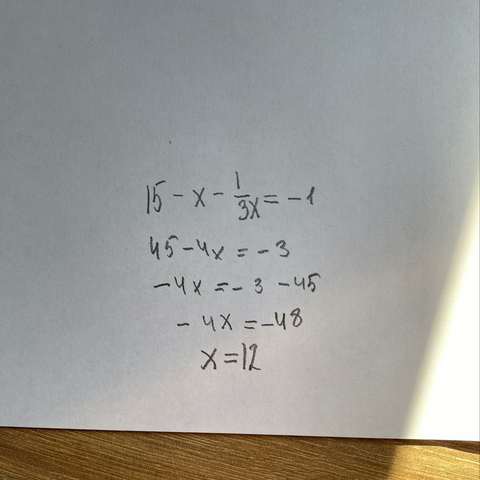 15 - x - 1/3x = -1
45 - 4x = -3
-4x = -3 - 45
-4x = -48
x = 12